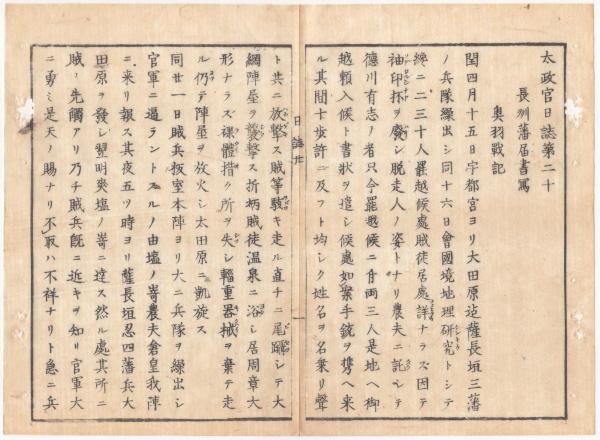 太政官日誌第二十
長州藩届書写
奥羽戦記
閏四月十五日宇都宮ヨリ大田原迄薩長垣三藩
ノ兵隊繰出シ同十六日會國境地理研究トシテ
纔ニ二三十人罷越候處賊徒居處詳ナラス因テ
袖印抔ヲ廢シ脱走人ノ姿トナリ農夫ニ託シテ
德川有志ノ者只今罷越候ニ付両三人是地ヘ御
越頼入候ト書状ヲ遣シ候處如案手銃ヲ携ヘ来
ル其間十歩許ニ及フト均シク姓名ヲ名乗リ聲
ト共ニ放撃ス賊等駭キ走ル直チニ尾躡シテ大
網陣屋ヲ襲撃ス折柄賊徒温泉ニ浴シ居周章大
形ナラス裸體措ク所ヲ失シ輜重器械ヲ棄テ走
ル仍テ陣屋ヲ放火シ太田原ニ凱旋ス
同廿一日賊兵板室本陣ヨリ大ニ兵隊ヲ繰出シ
官軍ニ逼ラントスルノ由塩ノ嵜農夫倉皇我陣
ニ来リ報ス其夜五ツ時ヨリ薩長垣忍四藩兵大
田原ヲ發シ翌明爽塩ノ嵜ニ達ス然ル處其所ニ
賊ノ先觸アリ乃チ賊兵既ニ近キヲ知リ官軍大
ニ勇ミ是天ノ賜ナリ不取ハ不祥ナリト急ニ兵
日誌廿
一